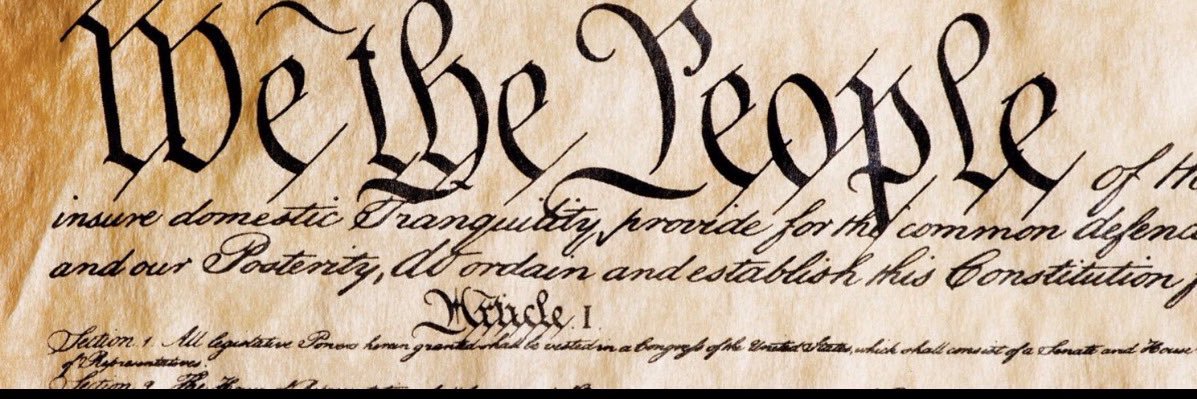 We the People of th
insure domestic Tranquility, provide for the common defenc
and our Posterity, do ordain and establish this Constitution f
Article. I.
Section. 1. All legislative Powers herein granted shall be vested in a Congress of the United States, which shall consist of a Senate and House
of Representatives.
Section. 2. The House